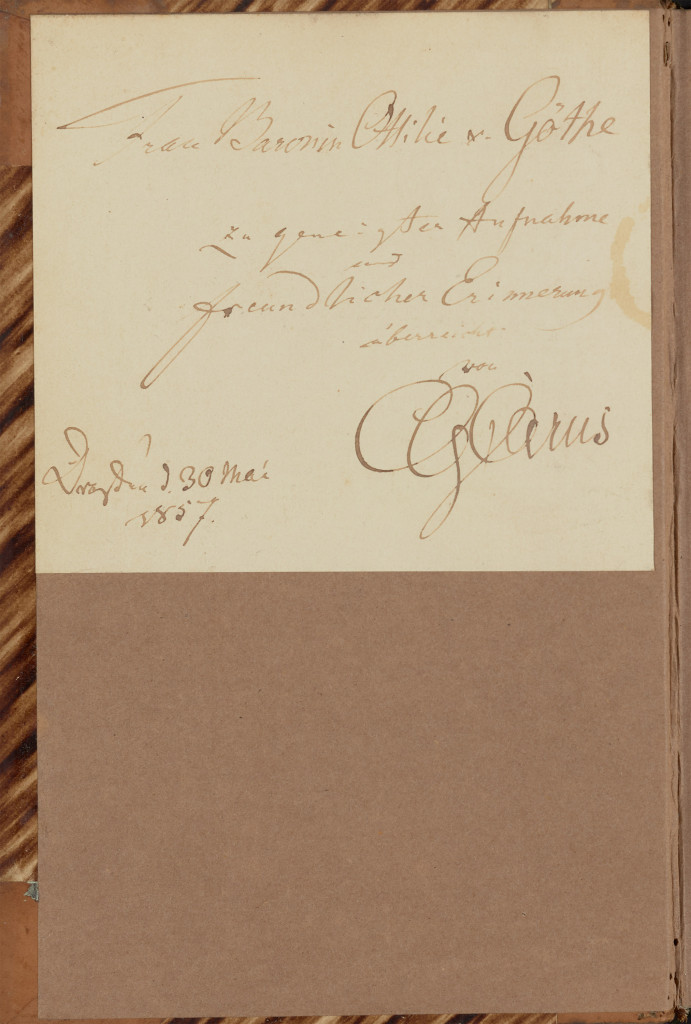 Frau Baronin Ottilie v. Göthe
zu geneigter Aufnahme
und
freundlicher Erinnerung
überreicht
von
CGCarus
Dresden d. 30 Mai
1857.